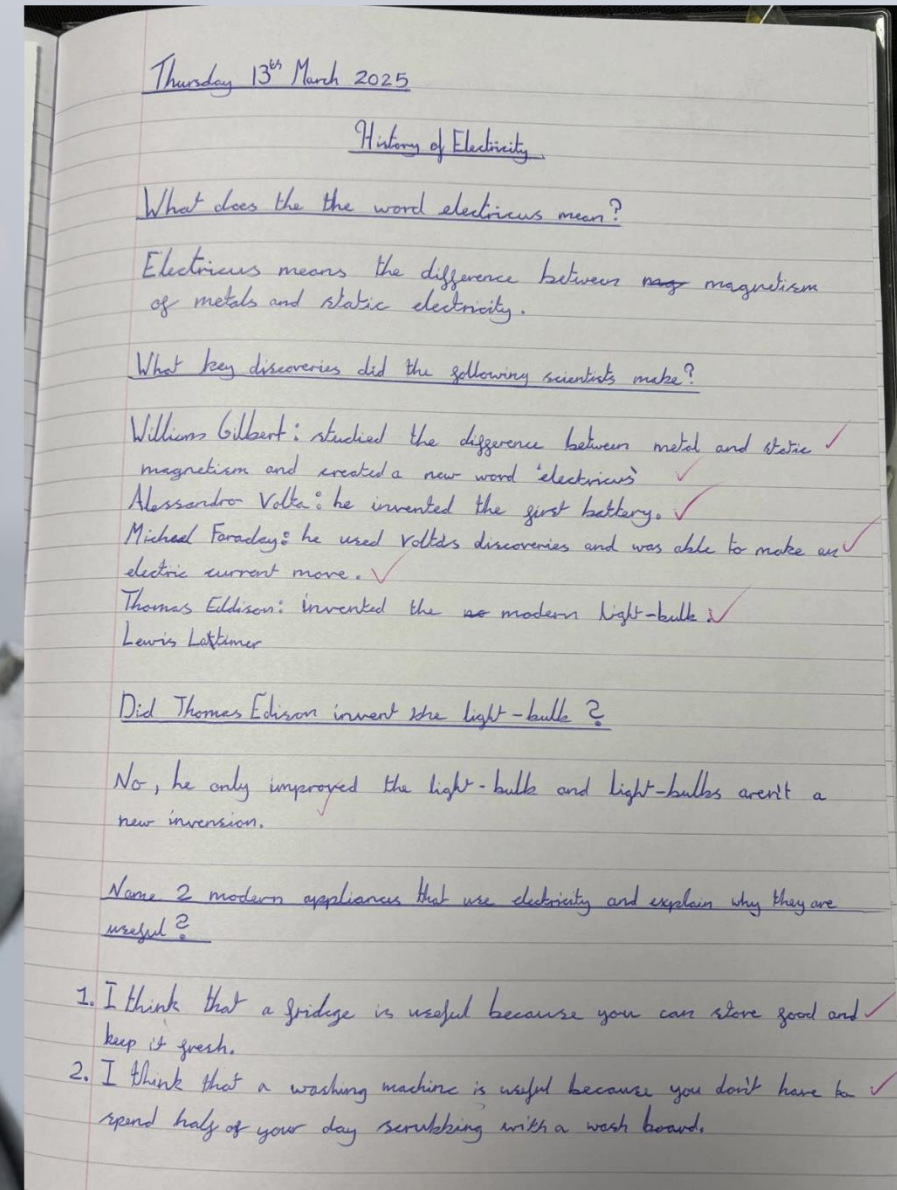 Thursday 13th March 2025
History of Electricity
What does the the word electricus mean?
Electricus means the difference between magnetism
of metals and static electricity.
What key discoveries did the following scientists make?
William Gilbert: studied the difference between metal and static
magnetism and created a new word 'electricus'
Alessandro Volta: he invented the first battery.
Michael Faraday: he used Volta's discoveries and was able to make an
electric current move.
Thomas Eddison: invented the modern light-bulb.
Lewis Lattimer
Did Thomas Edison invent the light-bulb?
No, he only improved the light-bulb and light-bulbs aren't a
new invension.
Name 2 modern appliances that use electricity and explain why they are
useful?
1. I think that a fridge is useful because you can store food and
keep it fresh.
2. I think that a washing machine is useful because you don't have to
spend half of your day scrubbing with a wash board.